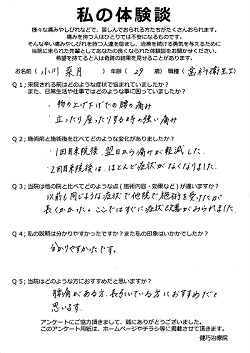 私の体験談
様々な痛みやしびれなどで、苦しんでおられる方がたくさんおられます。
痛みを持つ人はひとりでは不安になるものです。
そんな辛い痛みやしびれを持つ人達を励まし、治療を続ける勇気を与えるために
当院に来られた先輩としてのあなたの良くなられた体験談をお聞かせください。
希望を持てると人は奇跡的結果を見せることがあります。
お名前 (小川 菜月) 年齢 (29) 歳 職種 (歯科衛生士)
Q1;来院される前はどのような症状で悩まれていましたか?
また、日常生活や仕事ではどのような事に困っていましたか?
・物の上げ下げでの腰の痛み
・立ったり座ったりする時の強い痛み
Q2;施術前と施術後を比べてどのような変化がありましたか?
・1回目来院後、翌日から痛みが軽減した。
・2回目来院後は、ほとんど症状がなくなりました。
Q3;当院は他の院と比べてどのような点(施術内容・効果など)が違いますか?
以前も同じような症状で他院で施術を受けたが
長くかかった。ここではすぐに症状改善がみられました。
Q4;私の説明は分かりやすかったですか?また私の印象はいかがでしたか?
分かりやすかったです。
Q5;当院はどのような方におすすめだと思いますか?
腰痛がある方、長引いている方におすすめだと
思います。
アンケートにご協力頂きまして、誠にありがとうございました。
このアンケート用紙は、ホームページやチラシ等に掲載させて頂きます。
健巧治療院